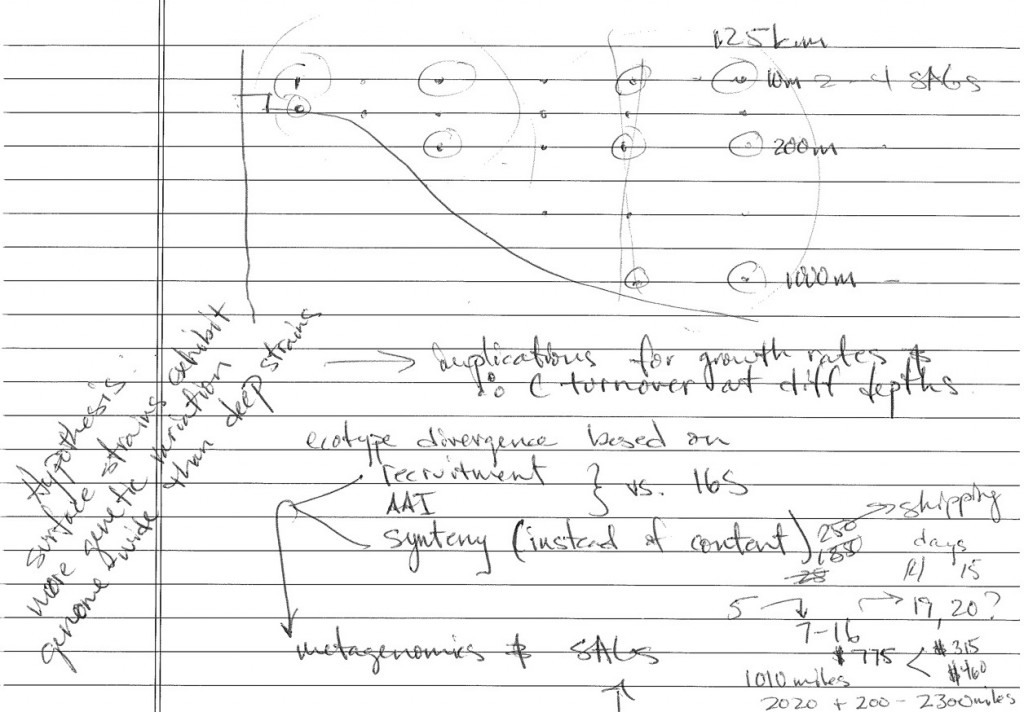 125km
10m 2 - 4 SAGs
200m
1000m
Hypothesis:
surface strains exhibit
more genetic variation
genome wide than deep strains
→ implications for growth rates &
% C turnover at diff depths
ecotype divergence based on
recruitment
AAI } vs. 16S
synteny (instead of content)
250 → shipping
days
28
15
5 → 7-16 → 19, 20?
$775 < $315
$460
metagenomics & SAGs
1010 miles
2020 + 200 - 2300 miles